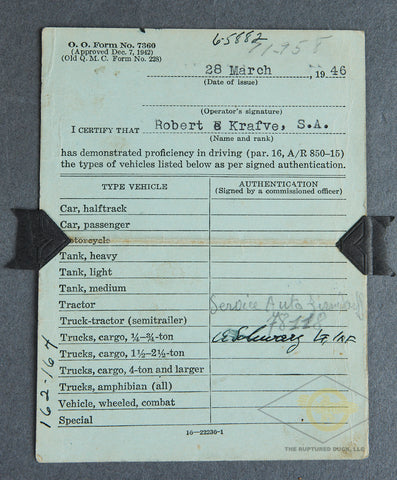 65882
O. O. Form No. 7360
(Approved Dec. 7, 1942)
(Old Q. M. C. Form No. 228)
28 March, 1946
(Date of issue)
(Operator's signature)
I CERTIFY THAT Robert E Krafve, S.A.
(Name and rank)
has demonstrated proficiency in driving (par. 16, A/R 850–15)
the types of vehicles listed below as per signed authentication.
TYPE VEHICLE AUTHENTICATION
(Signed by a commissioned officer)
Car, halftrack
Car, passenger
Motorcycle
Tank, heavy
Tank, light
Tank, medium
Tractor
Truck-tractor (semitrailer) 78118
Trucks, cargo, ¼–¾-ton
Trucks, cargo, 1½–2½-ton
Trucks, cargo, 4-ton and larger
Trucks, amphibian (all)
Vehicle, wheeled, combat
Special
16—22236-1
162-164
THE RUPTURED DUCK, LLC